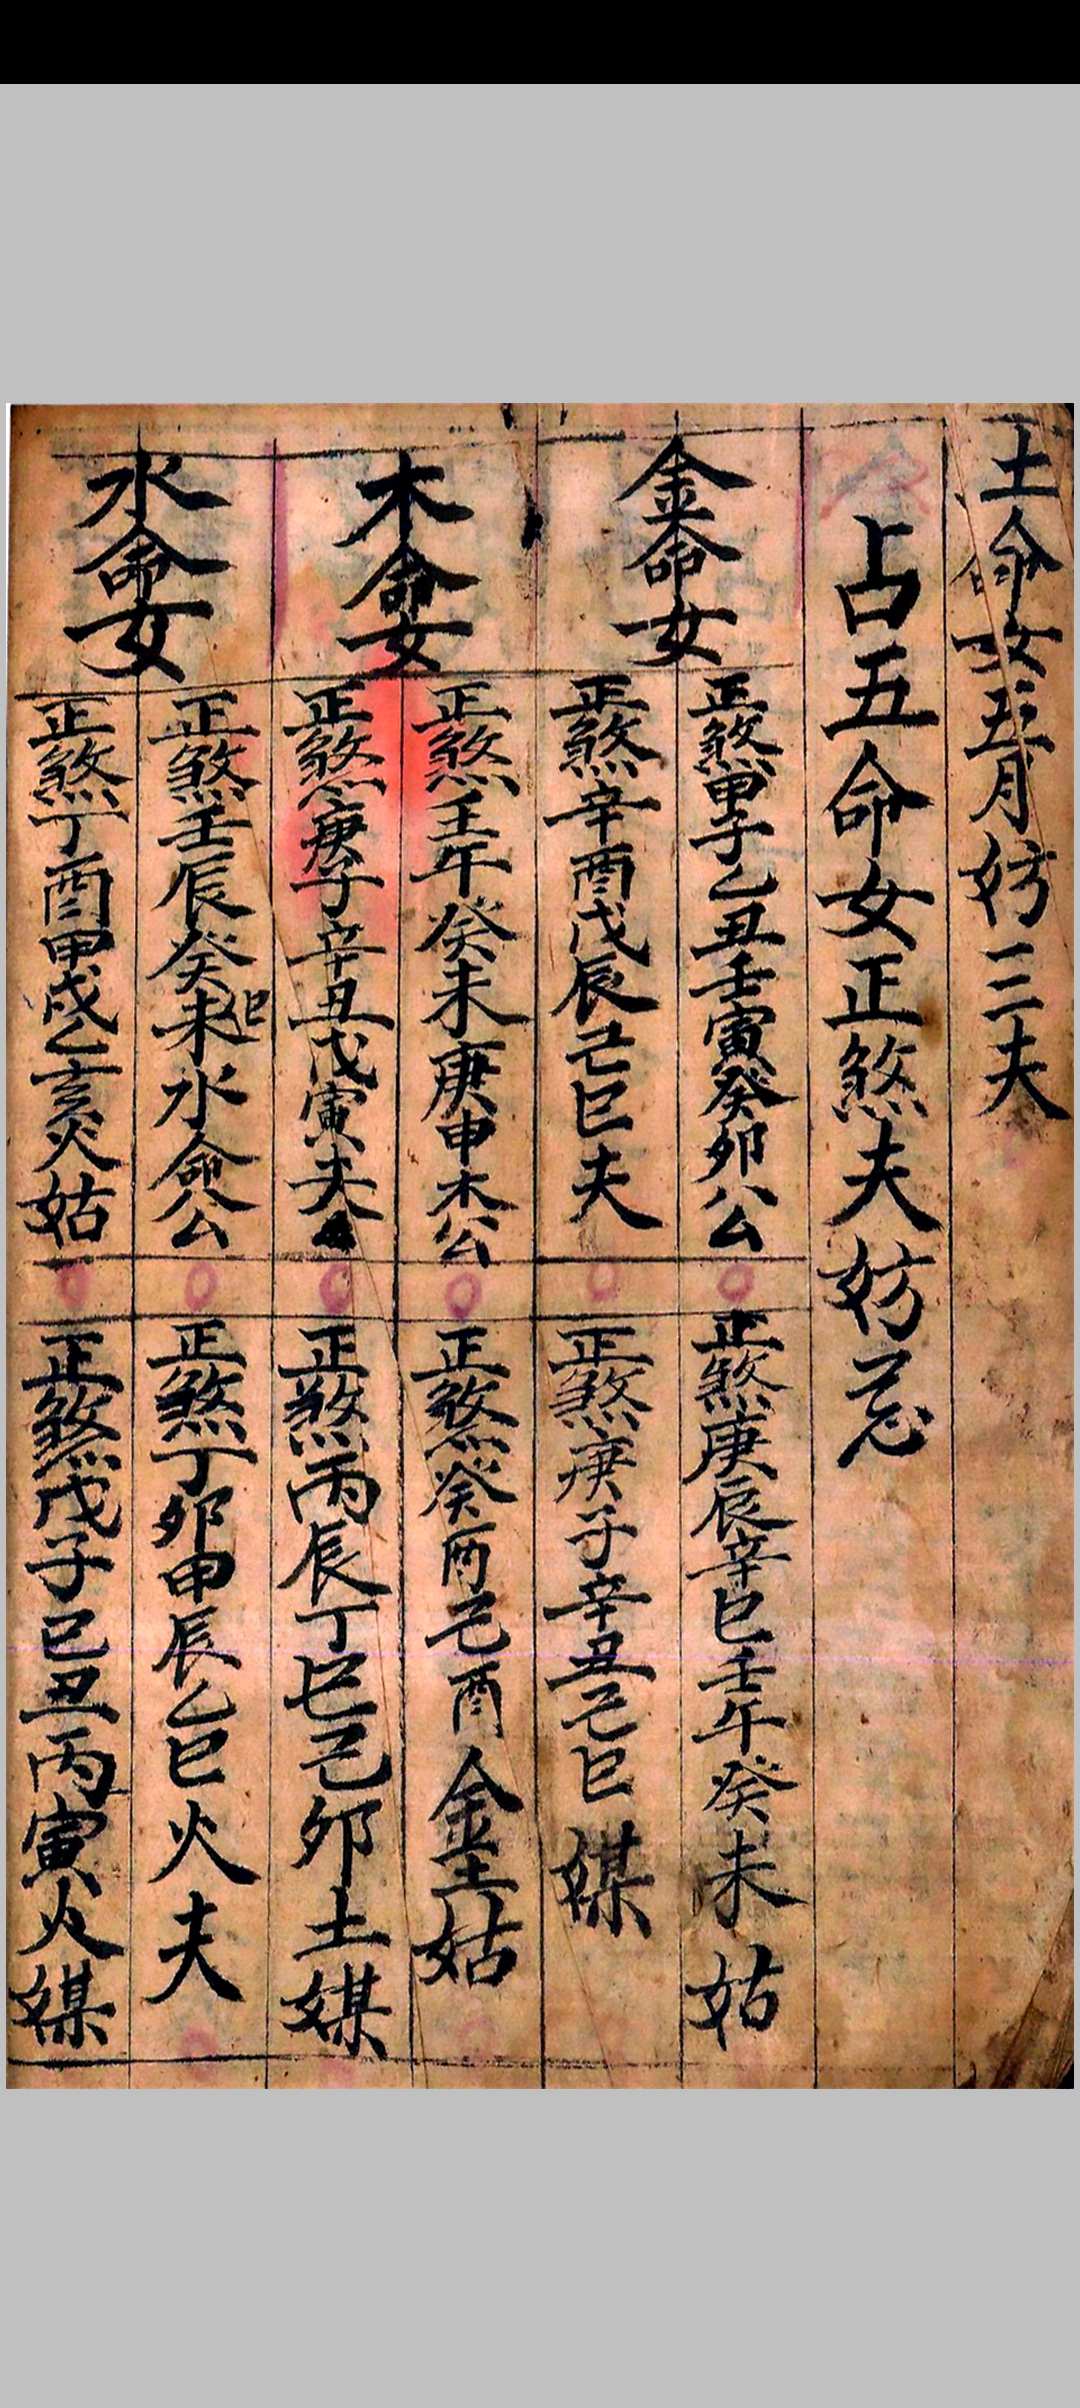 土命女五月妨三夫
占五命女正煞夫妨忌
金命女
正煞甲子乙丑壬寅癸卯公
正煞庚辰辛巳壬午癸未姑
正煞辛酉戊辰己巳夫
正煞庚子辛丑己巳媒
木命女
正煞壬午癸未庚申木公
正煞癸酉己酉金土姑
正煞庚子辛丑戊寅夫
正煞丙辰丁巳己卯土媒
水命女
正煞壬辰癸未巳水命公
正煞丁卯甲辰乙巳火夫
正煞丁酉甲戌乙亥火姑
正煞戊子己丑丙寅火媒